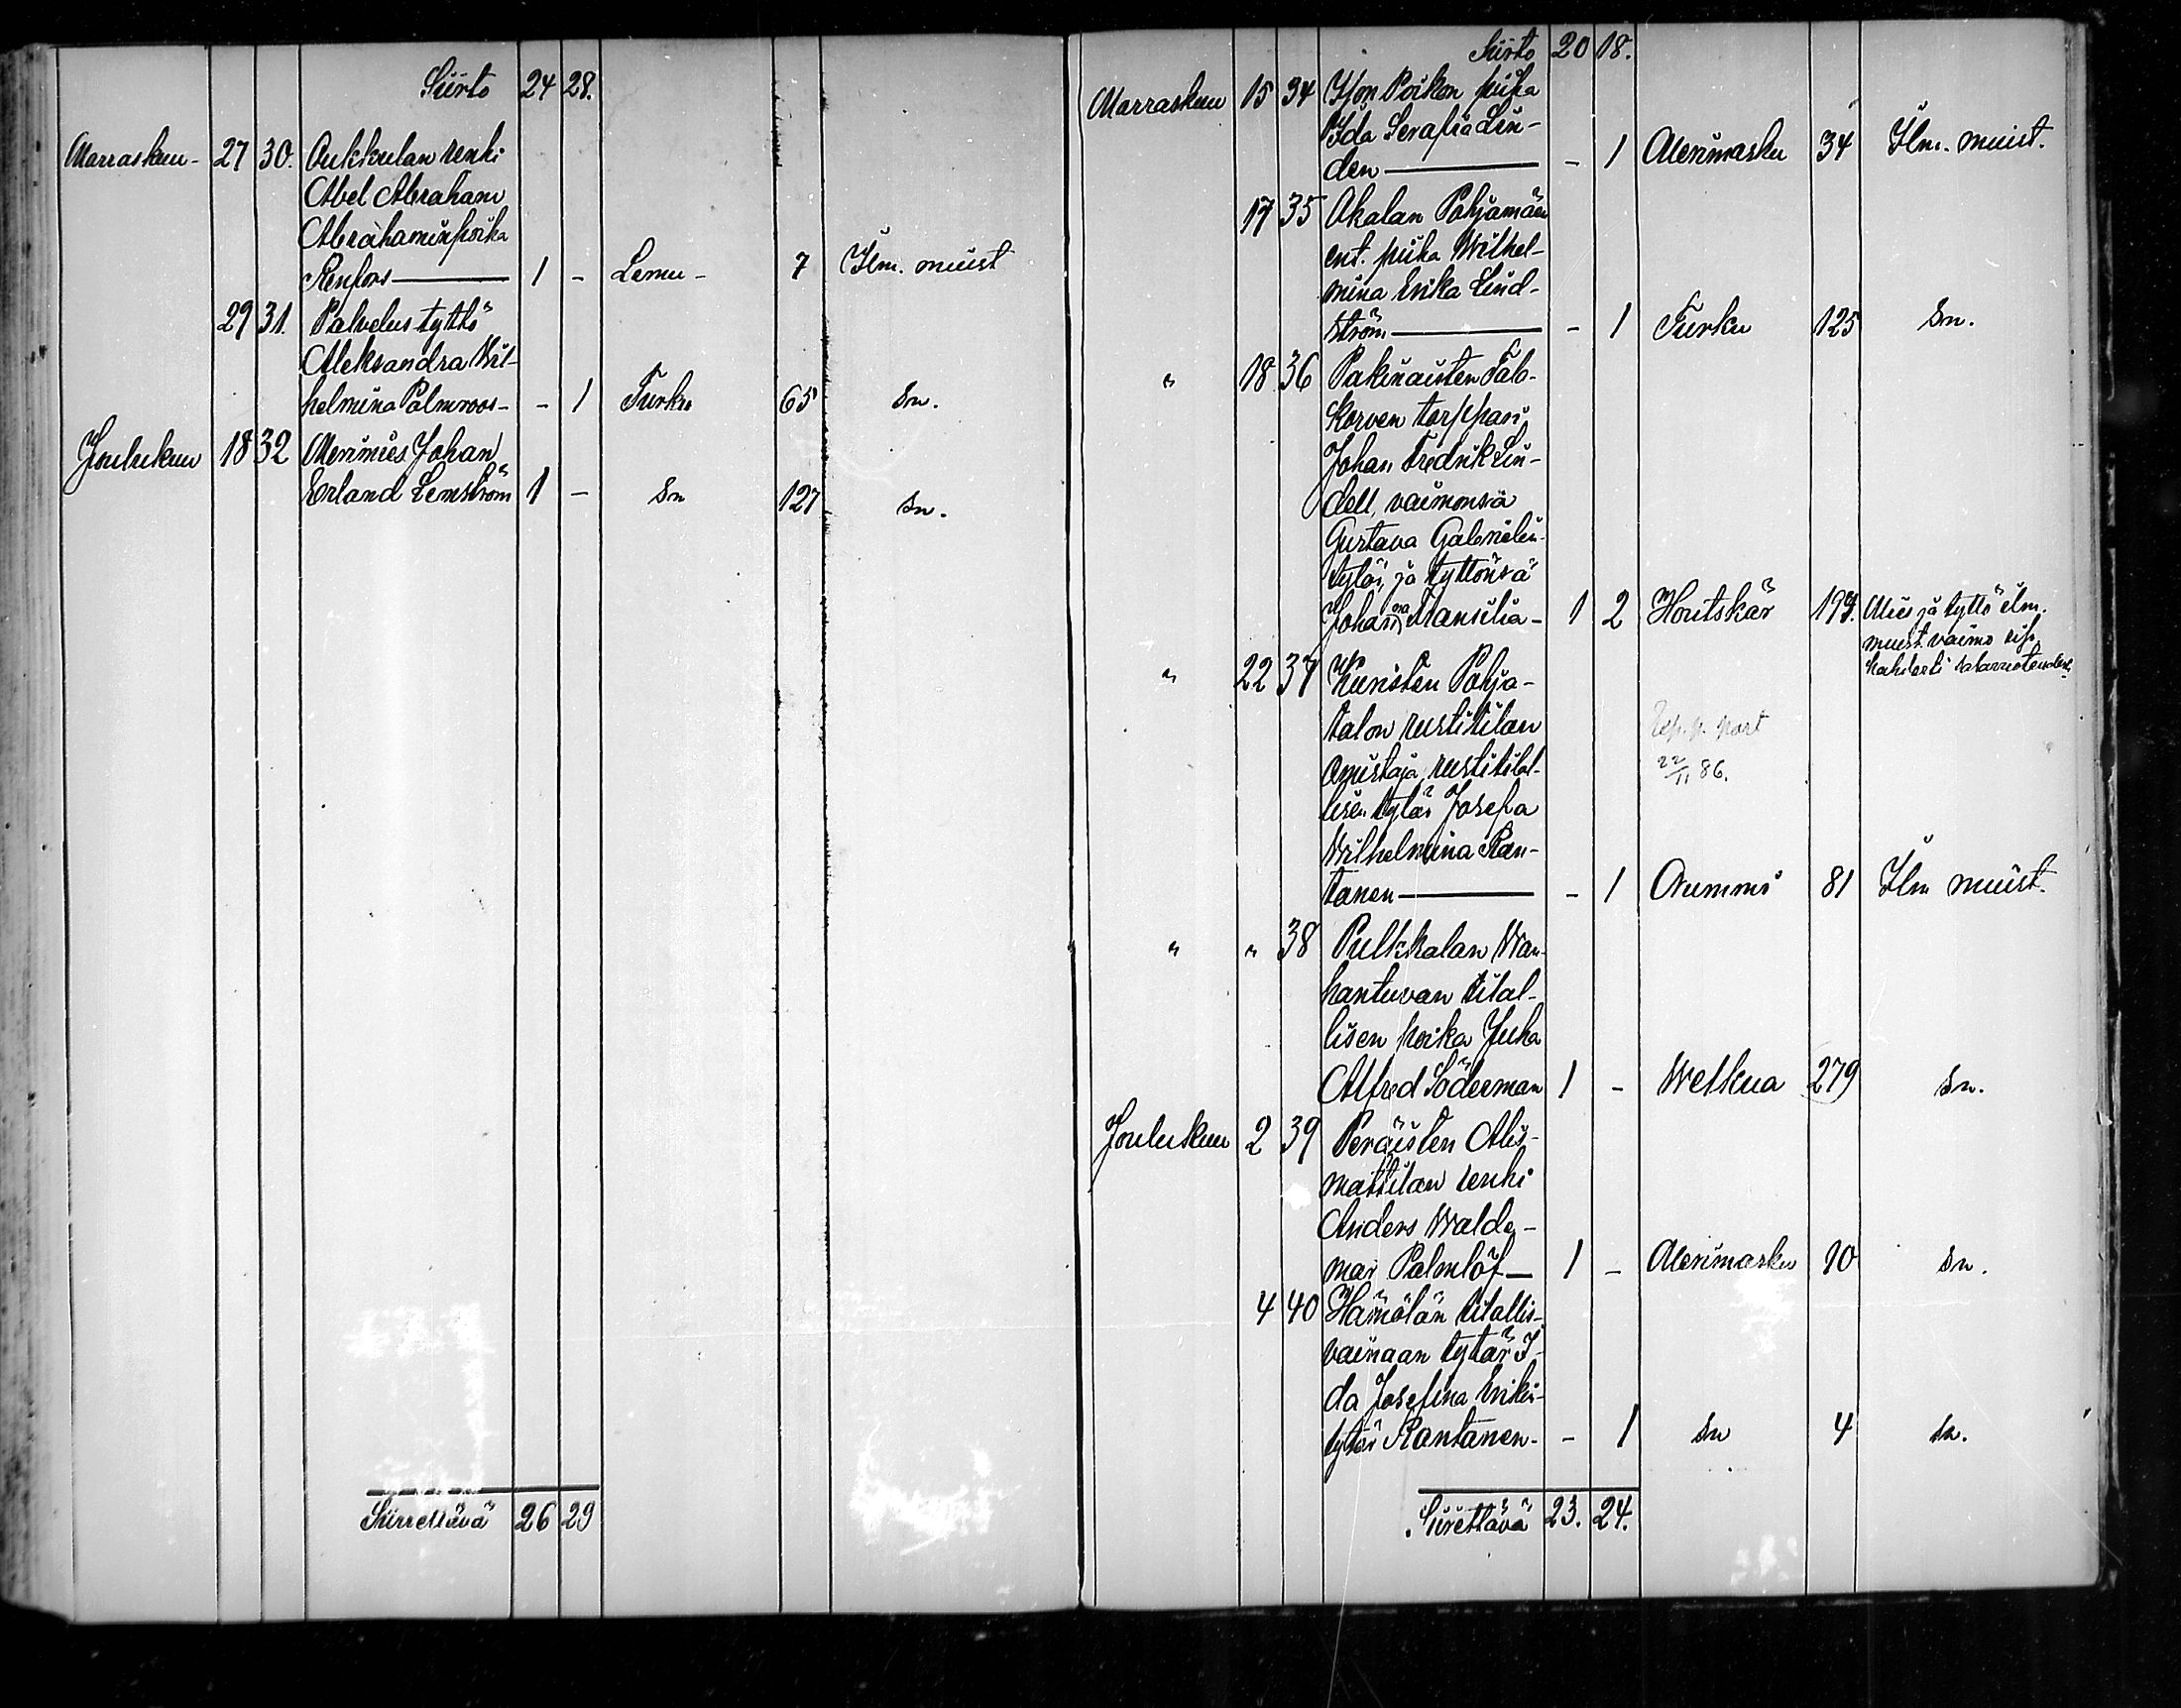 Siirto 24 28.
Marraskuu - 27 30. Aukkulan renki
Abel Abraham
Abrahaminpoika
Renfors — 1 - Lemu - 7 Ilm. muist
29 31. Palvelus tyttö
Aleksandra Wil-
helmina Palmroos - - 1 Turku 65 sn.
Joulukuu 18 32 Merimies Johan
Erland Lemström 1 - sn 127 sn.
Siirrettävä 26 29
Siirto 20 18.
Marraskuu 15 34 Ison Poikon piika
Ida Serafia Lin-
den — - 1 Merimasku 34 Ilm. muist.
17 35 Akalan Pohjamäen
ent. piika Wilhel-
mina Erika Lind-
ström — - 1 Turku 125 sn.
" 18 36 Pakinaisten Talo-
korven torppari
Johan Fredrik Lin-
dell, vaimonsa
Gustava Gabrielin-
tytär, ja tyttönsä
Johanna Fransilia - 1 2 Houtskär 199. Mies ja tyttö ilm.
muist. vaimo rip.
" 22 37 Kuristen Pohja-
talon rustitilan
omistaja, rustitilal-
lisen tytär Josefa
Wilhelmina Ran-
tanen — - 1 Nummi 81 Ilm muist.
22/11 86.
" " 38 Pulkkalan Wan-
hantuvan tilal-
lisen poika Juha
Alfred Söderman 1 - Welkua 279 sn.
Joulukuu 2 39 Peräisten Alis-
mattilan renki
Anders Walde-
mar Palmlöf — 1 - Merimasku 10 sn.
4 40 Hämölän tilallis-
vainaan tytär I-
da Josefina Erikin-
tytär Rantanen - - 1 sn 4 sn.
Siirettävä 23. 24.